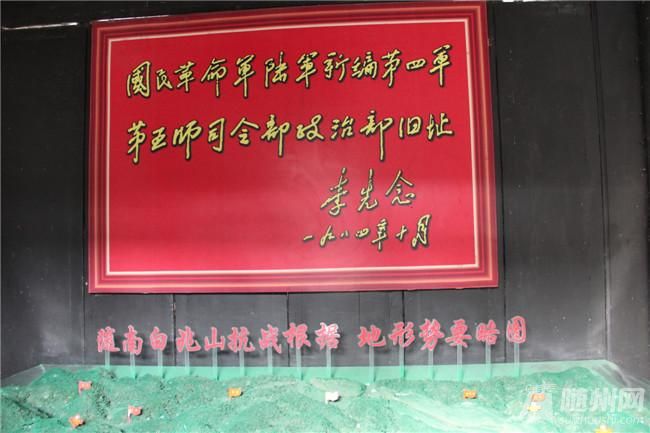 國民革命軍陆軍新编第四軍
第五师司令部政治部旧址
李先念
一九八四年十月
随南白兆山抗战根据 地形势要略图
随州网
www.suizhoushi.com